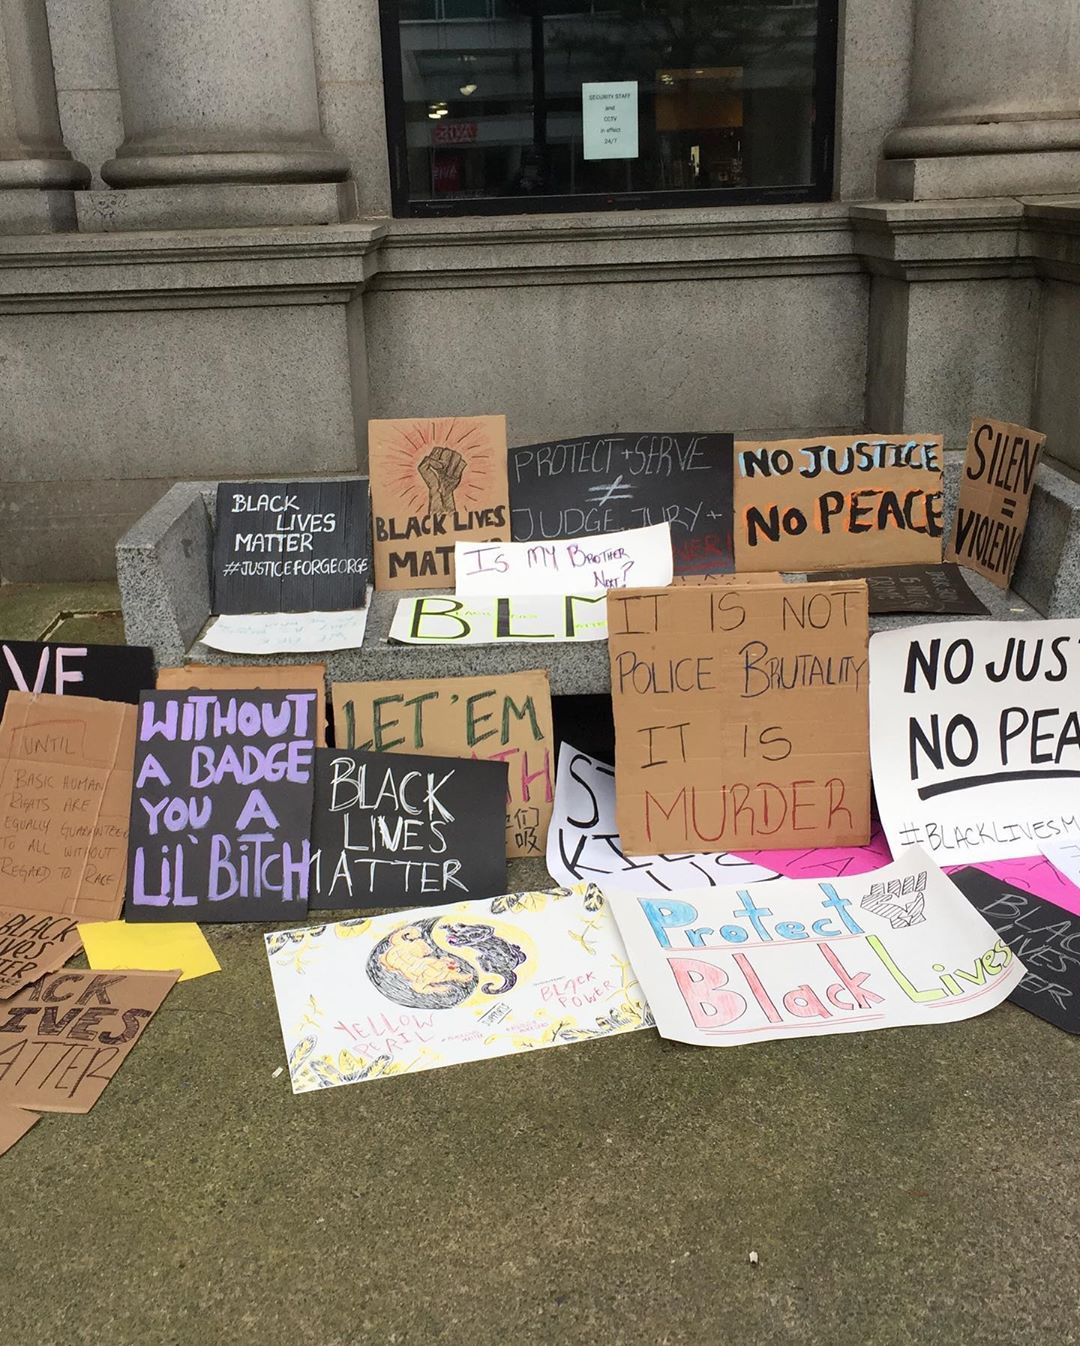 SECURITY STAFF
and
CCTV
in effect
24/7
BLACK
LIVES
MATTER
#JUSTICEFORGEORGE
BLACK LIVES
MAT
PROTECT + SERVE
≠
JUDGE, JURY +
NO JUSTICE
NO PEACE
SILEN
=
VIOLEN
IS MY BROTHER
NEXT?
BLM
IT IS NOT
POLICE BRUTALITY
IT IS
MURDER
NO JUS
NO PEA
#BLACKLIVESM
VE
UNTIL
BASIC HUMAN
RIGHTS ARE
EQUALLY GUARANTEED
TO ALL WITHOUT
REGARD TO RACE
WITHOUT
A BADGE
YOU A
LIL' BITCH
LET 'EM
TH
们
吸
BLACK
LIVES
MATTER
ST
KILL
US
BLACK
LIVES
TER
ACK
IVES
ATTER
YELLOW
PERIL
SUPPORTS
BLACK
POWER
Protect
Black Lives
BLAC
IVES
TER